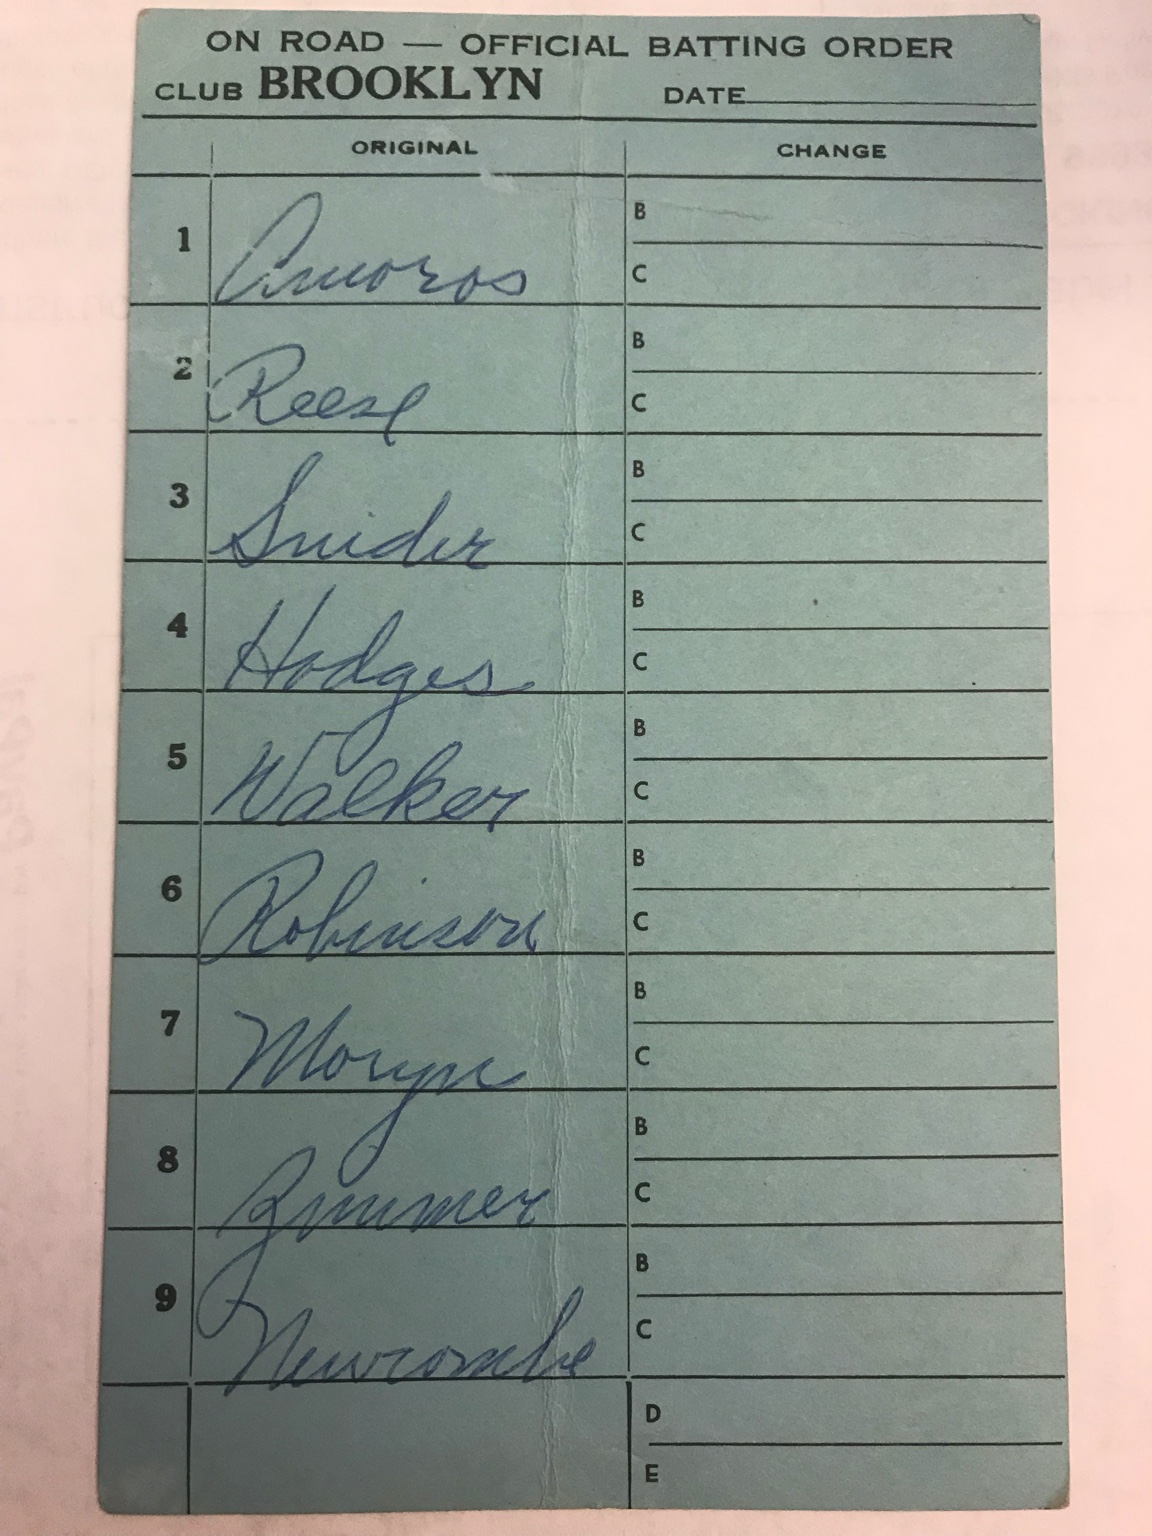 ON ROAD — OFFICIAL BATTING ORDER
CLUB BROOKLYN DATE
ORIGINAL CHANGE
1 Amoros B
C
2 Reese B
C
3 Snider B
C
4 Hodges B
C
5 Walker B
C
6 Robinson B
C
7 Moryn B
C
8 Zimmer B
C
9 Newcombe B
C
D
E